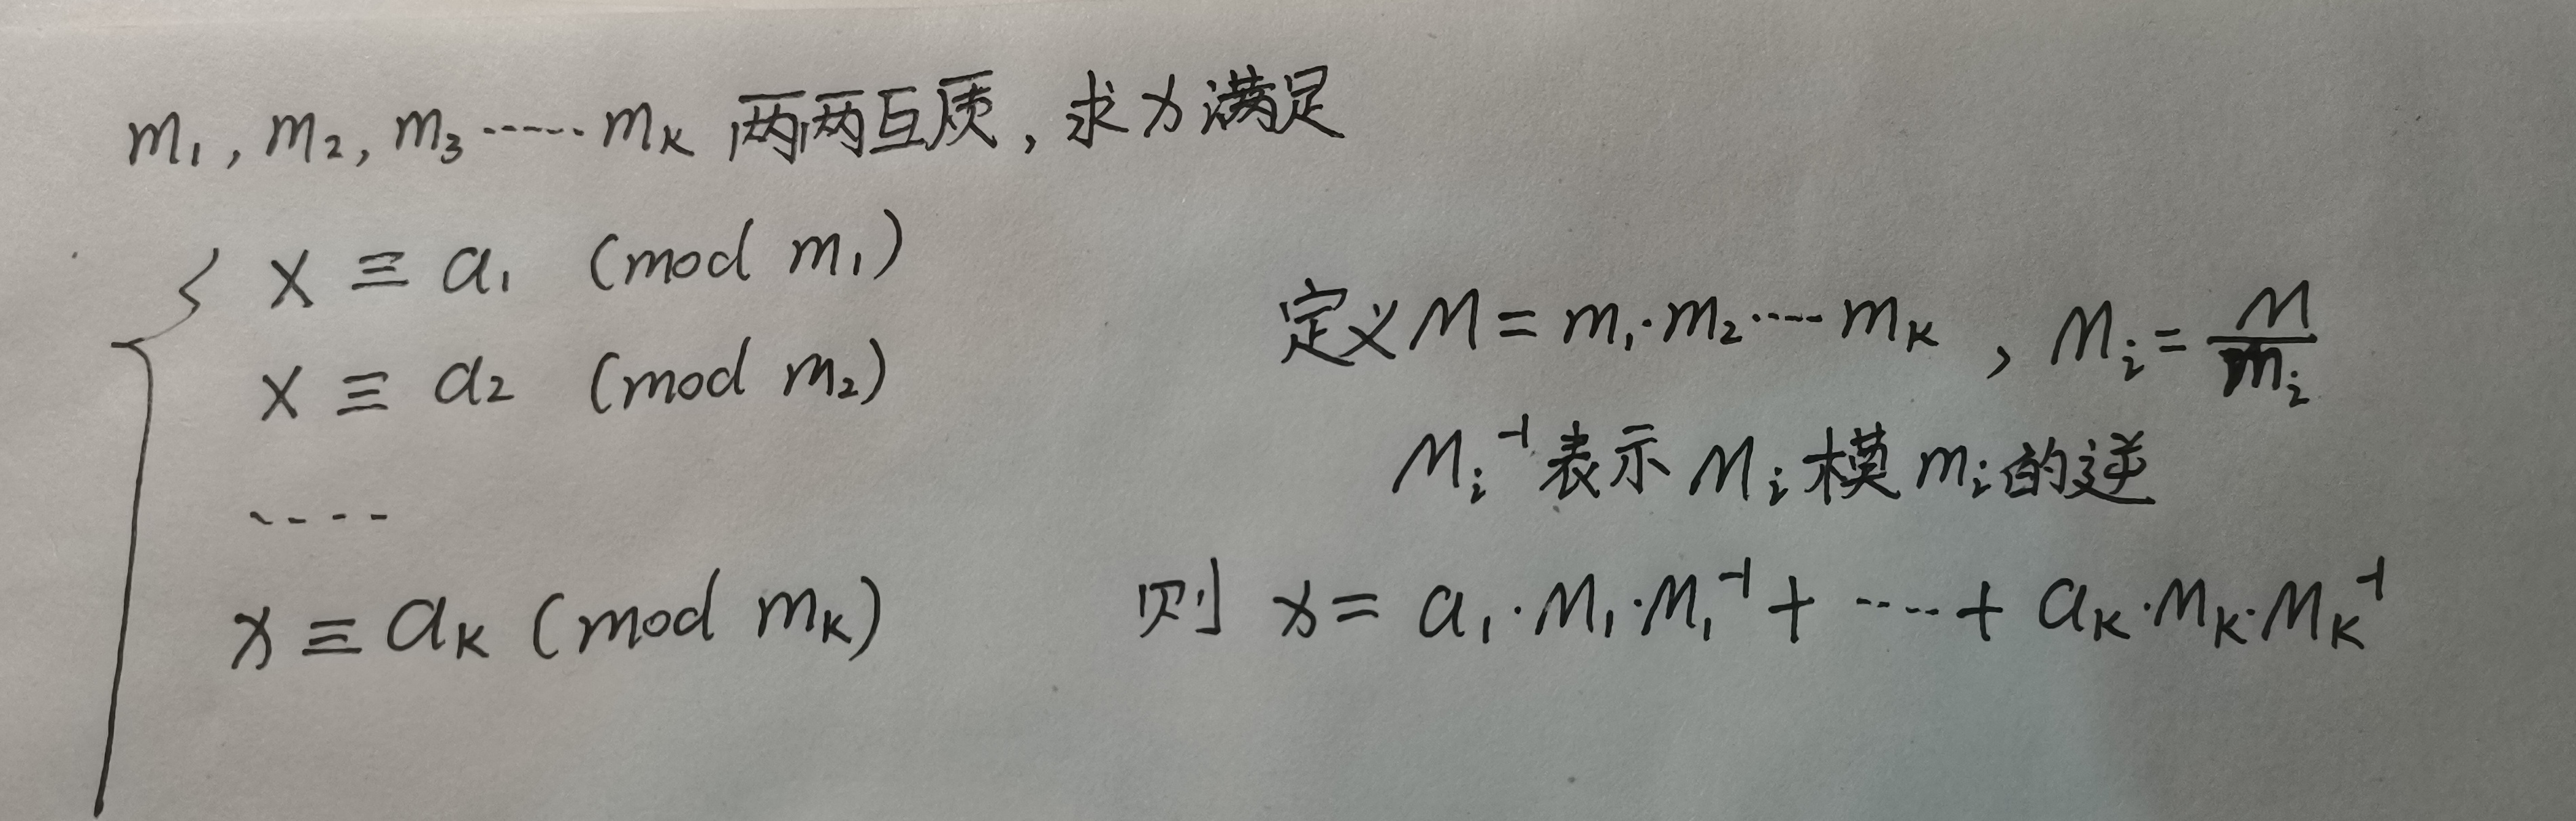 m₁, m₂, m₃ ······ mₖ 两两互质, 求x满足
x ≡ a₁ (mod m₁)
x ≡ a₂ (mod m₂)
····
x ≡ aₖ (mod mₖ)
定义M = m₁·m₂····· mₖ , Mᵢ = M/mᵢ
Mᵢ⁻¹表示Mᵢ模mᵢ的逆
则 x = a₁·M₁·M₁⁻¹ + ····+ aₖ·Mₖ·Mₖ⁻¹